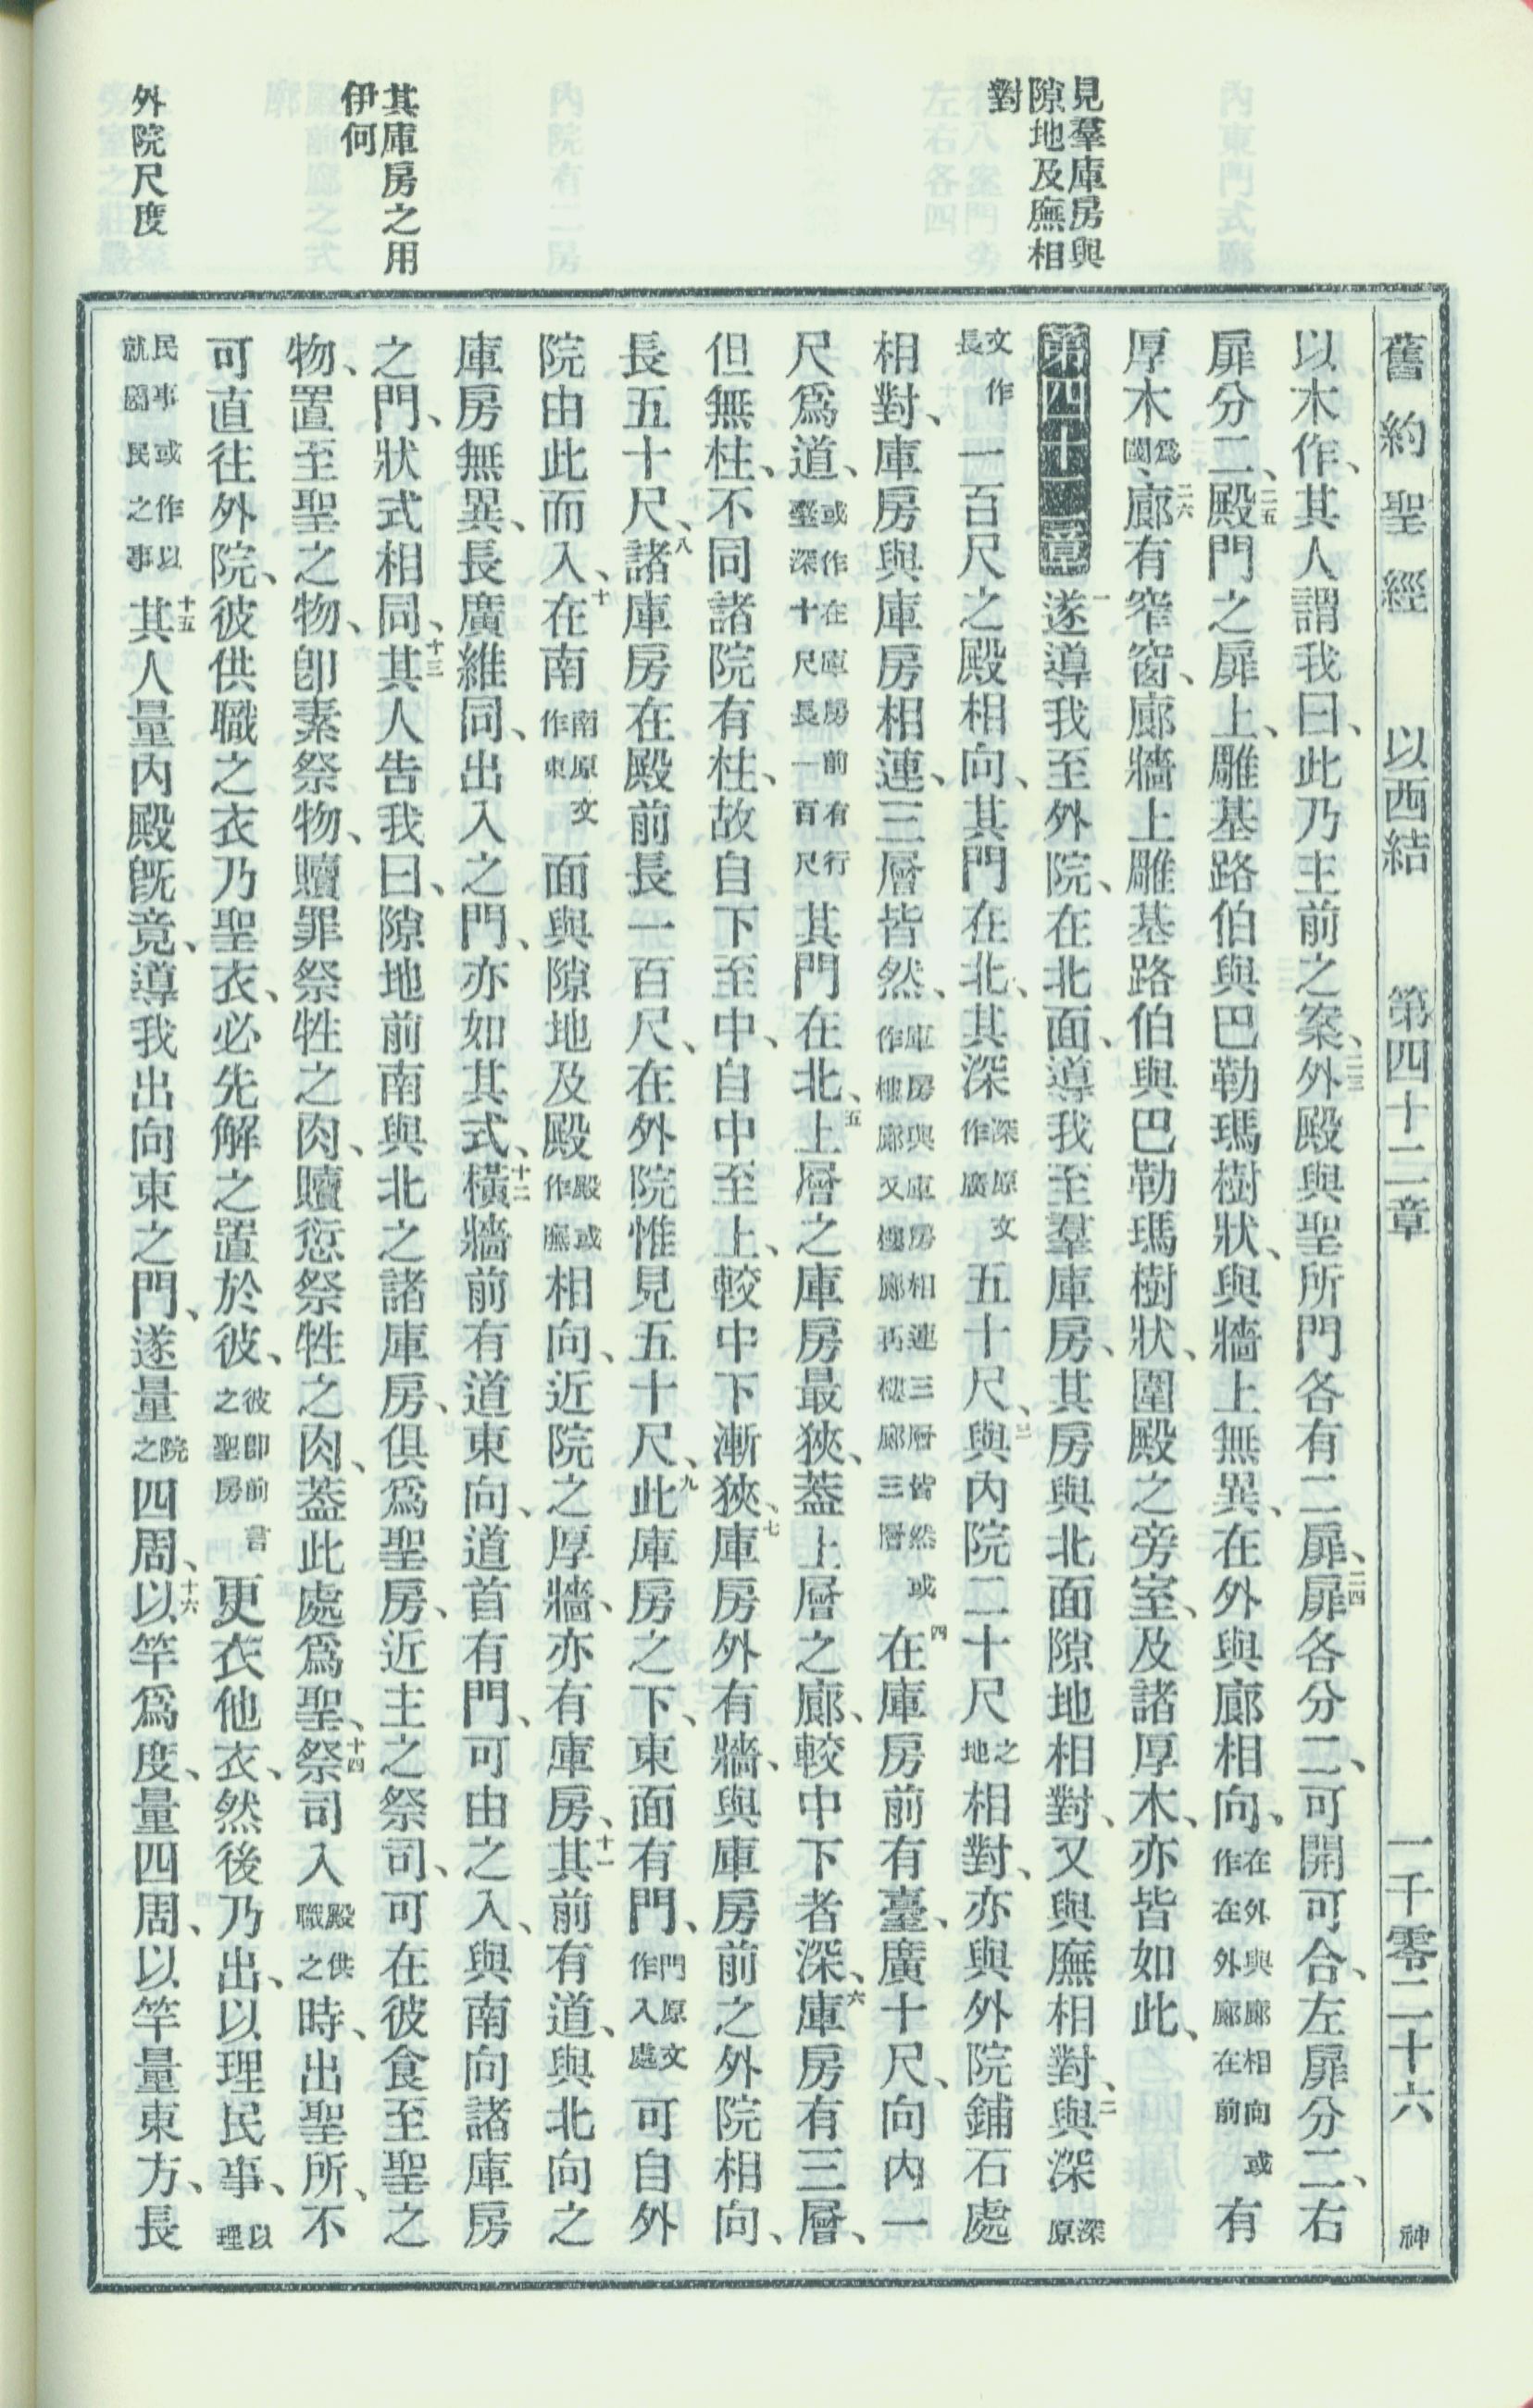 舊約聖經 以西結 第四十二章 一千零二十六 神
見羣庫房與
隙地及廡相
對
其庫房之用
伊何
外院尺度
以木作、其人謂我曰、此乃主前之案、二三外殿與聖所門各有二扉、二四扉各分二、可開可合、左扉分二、右
扉分二、二五殿門之扉上、雕基路伯與巴勒瑪樹狀、與牆上無異、在外與廊相向、在外與廊相向或作在外廊在前有
厚木爲閾、二六廊有窄窗、廊牆上雕基路伯與巴勒瑪樹狀、圍殿之旁室、及諸厚木、亦皆如此、
第四十二章 一遂導我至外院、在北面、導我至羣庫房、其房與北面隙地相對、又與廡相對、二與深深原
文作長一百尺之殿相向、其門在北、其深深原文作廣五十尺、三與內院二十尺之地相對、亦與外院鋪石處
相對、庫房與庫房相連、三層皆然、庫房與庫房相連三層皆然或作樓廊又樓廊再樓廊三層四在庫房前有臺、廣十尺、向內一
尺爲道、或作在庫房前有行臺深十尺長一百尺其門在北、五上層之庫房最狹、蓋上層之廊、較中下者深、六庫房有三層、
但無柱、不同諸院有柱、故自下至中、自中至上、較中下漸狹、七庫房外有牆、與庫房前之外院相向、
長五十尺、八諸庫房在殿前長一百尺、在外院惟見五十尺、九此庫房之下、東面有門、門原文作入處可自外
院由此而入、十在南南原文作東面與隙地及殿殿或作廡相向、近院之厚牆、亦有庫房、十一其前有道、與北向之
庫房無異、長廣維同、出入之門、亦如其式、十二橫牆前有道東向、道首有門、可由之入、與南向諸庫房
之門、狀式相同、十三其人告我曰、隙地前南與北之諸庫房、俱爲聖房、近主之祭司、可在彼食至聖之
物、置至聖之物、卽素祭物、贖罪祭牲之肉、贖愆祭牲之肉、蓋此處爲聖、十四祭司入殿供職之時、出聖所、不
可直往外院、彼供職之衣乃聖衣、必先解之置於彼、彼卽前言之聖房更衣他衣、然後乃出、以理民事、以理
民事或作以就關民之事十五其人量內殿旣竟、導我出向東之門、遂量院之四周、十六以竿爲度、量四周、以竿量東方、長